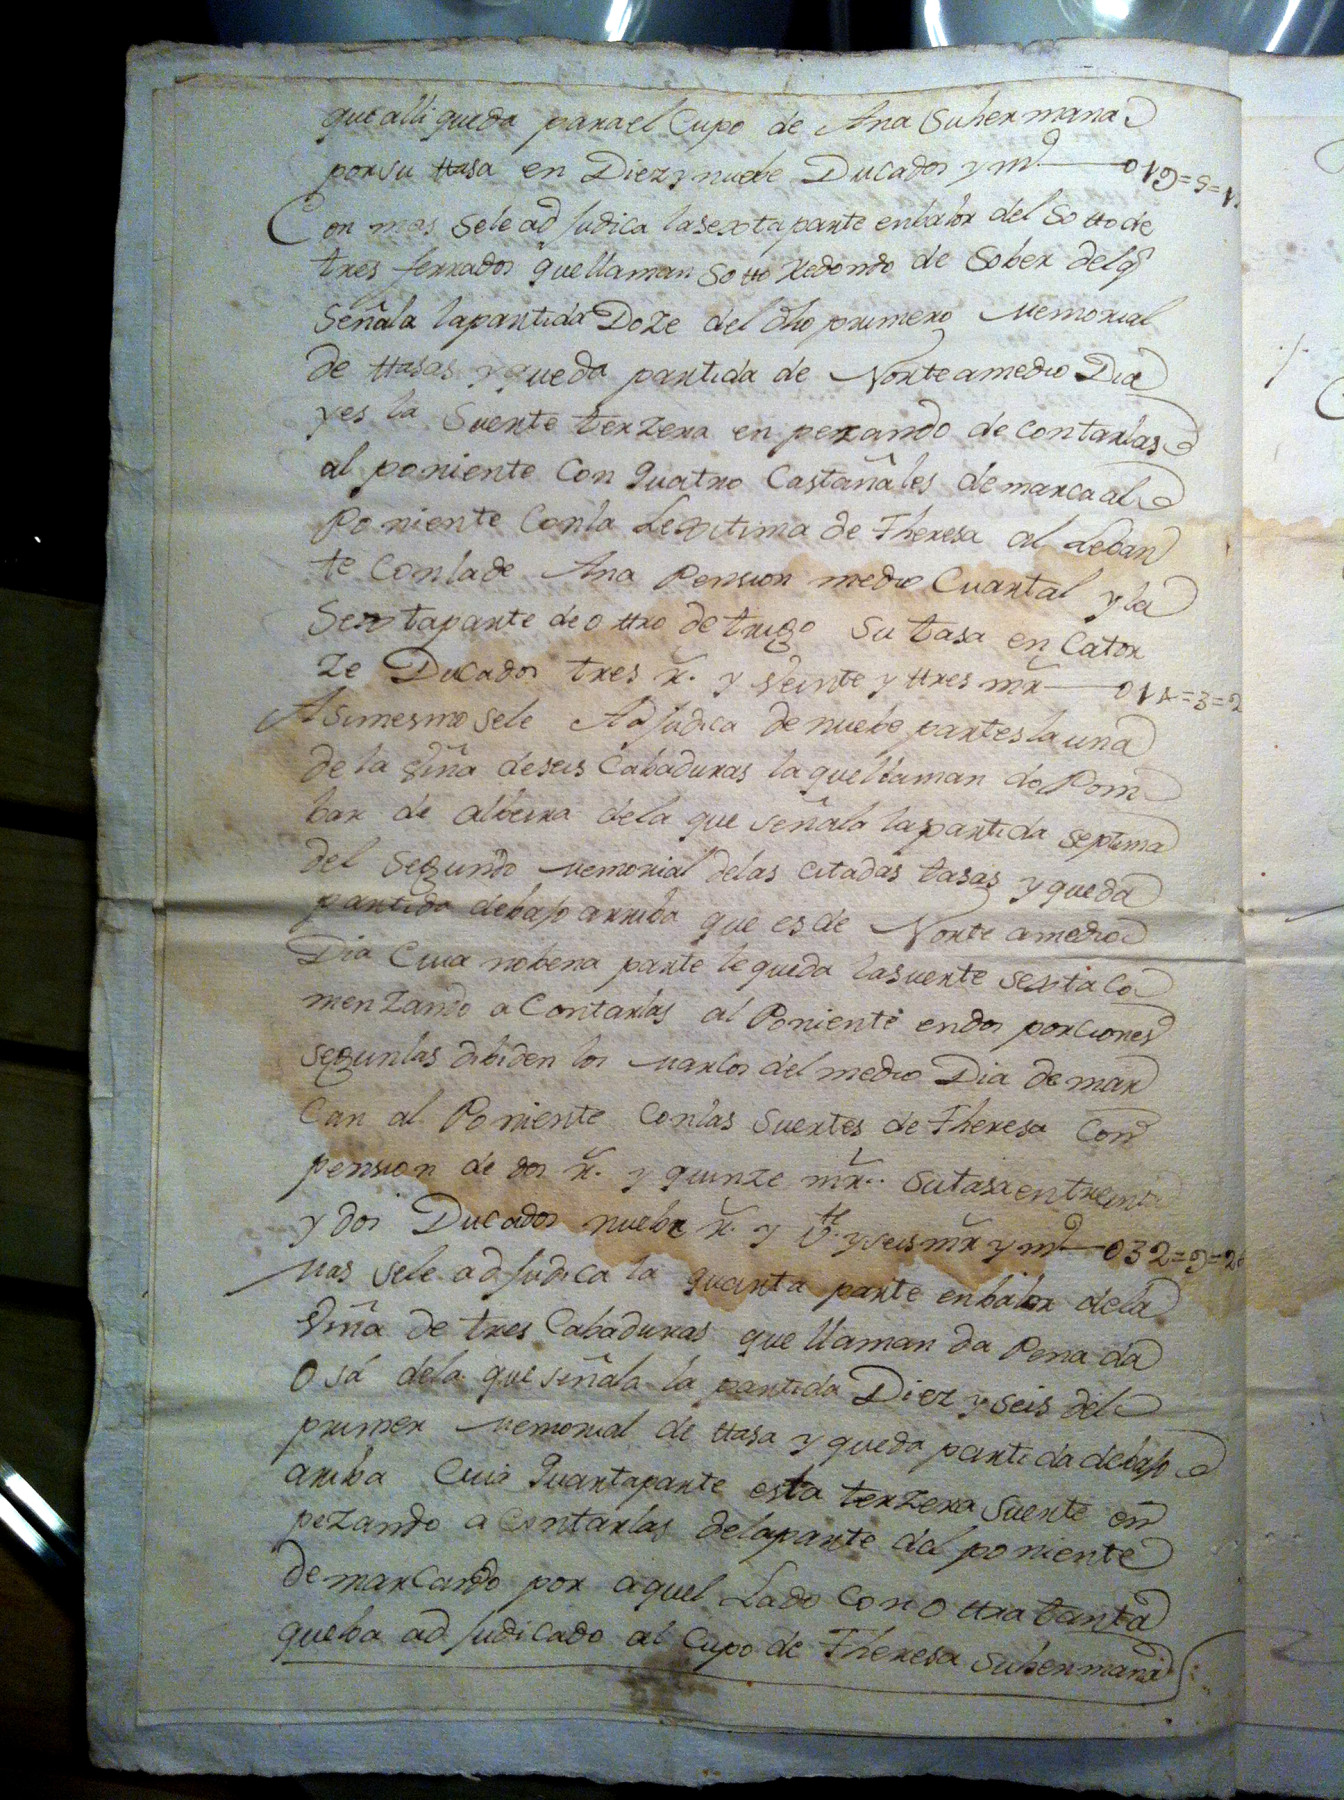 que alli queda para el Cupo de Ana Su hermana
por su ttasa en Diez y nuebe Ducados y mº — 019=5=1
Con mas Sele ad Judica la sexta parte en balor del Sotto de
tres ferrados que llaman Sotto Redondo de Sober del q̃
Señala la partida Doze del dho primero Memorial
de ttasas y queda partida de Norte a medio Dia
y es la Suerte terzera en pezando de contarlas
al poniente Con quatro Castañales demarca al
Poniente Con la Lexitima de Theresa al Leban
te Con la de Ana Pension medio Cuartal y la
Sexta parte de ottro de trigo Su tasa en Cator
ze Ducados tres rˢ. y Veinte y ttres mrˢ — 014=3=2
Asimesmo sele Ad Judica de nuebe partes la una
de la Viña de seis Cabaduras la que llaman do Pom
bar de albeira de la que señala la partida septima
del Segundo Memorial de las citadas tasas y queda
partida debajo arriba que es de Norte a medio
Dia Cuia nobena parte le queda la suerte sexta Co
menzando a Contarlas al Poniente en dos porciones
segun las dibiden los Marcos del medio Dia demar
Can al Poniente Con las Suertes de Theresa Con
pension de dos rˢ. y quinze mrˢ. Su tasa en treint
y dos Ducados nuebe rˢ. y Vᵗᵉ. y seis mrˢ y mº — 032=9=26
Mas sele ad Judica la quarta parte en balor de la
Viña de tres Cabaduras que llaman da Pena da
Osa de la que señala la partida Diez y seis del
primer Memorial de ttasa y queda partida debajo
arriba Cuia Quarta parte esta terzera Suerte en
pezando a Contarlas de la parte del poniente
demarcando por aquel Lado Con ottra tanta
que ba ad Judicado al Cupo de Theresa Su hermana